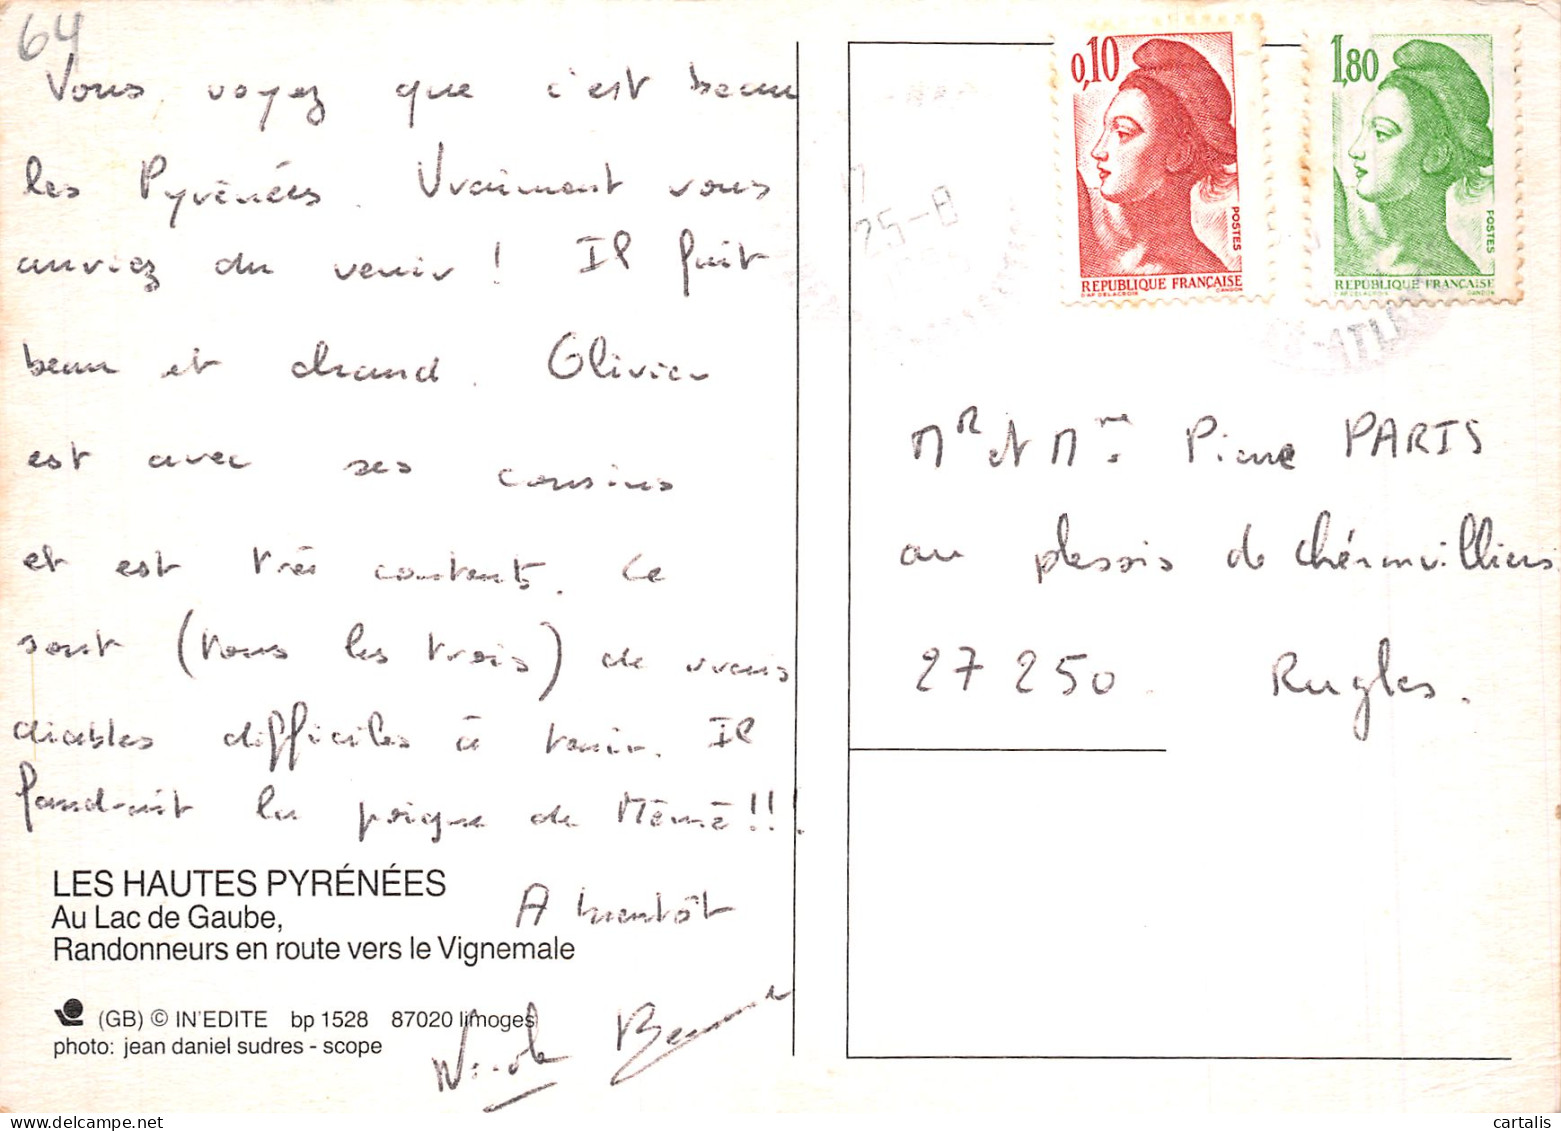 64
Vous voyez que c'est beau
les Pyrénées. Vraiment vous
auriez du venir ! Il fait
beau et chaud. Olivier
est avec ses cousins
et est très content. Ce
sont (tous les trois) de vrais
diables difficiles à tenir. Il
faudrait la poigne de Mémé !!.
A bientôt
LES HAUTES PYRÉNÉES
Au Lac de Gaube,
Randonneurs en route vers le Vignemale
(GB) © IN'EDITE bp 1528 87020 limoges
photo: jean daniel sudres - scope
Nicole
0,10
POSTES
REPUBLIQUE FRANÇAISE
D'AP. DELACROIX GANDON
1,80
POSTES
REPUBLIQUE FRANÇAISE
D'AP. DELACROIX GANDON
25-8
Mr et Mme Pierre PARIS
au plessis de Chéronvilliers
27250. Rugles.
cartalis